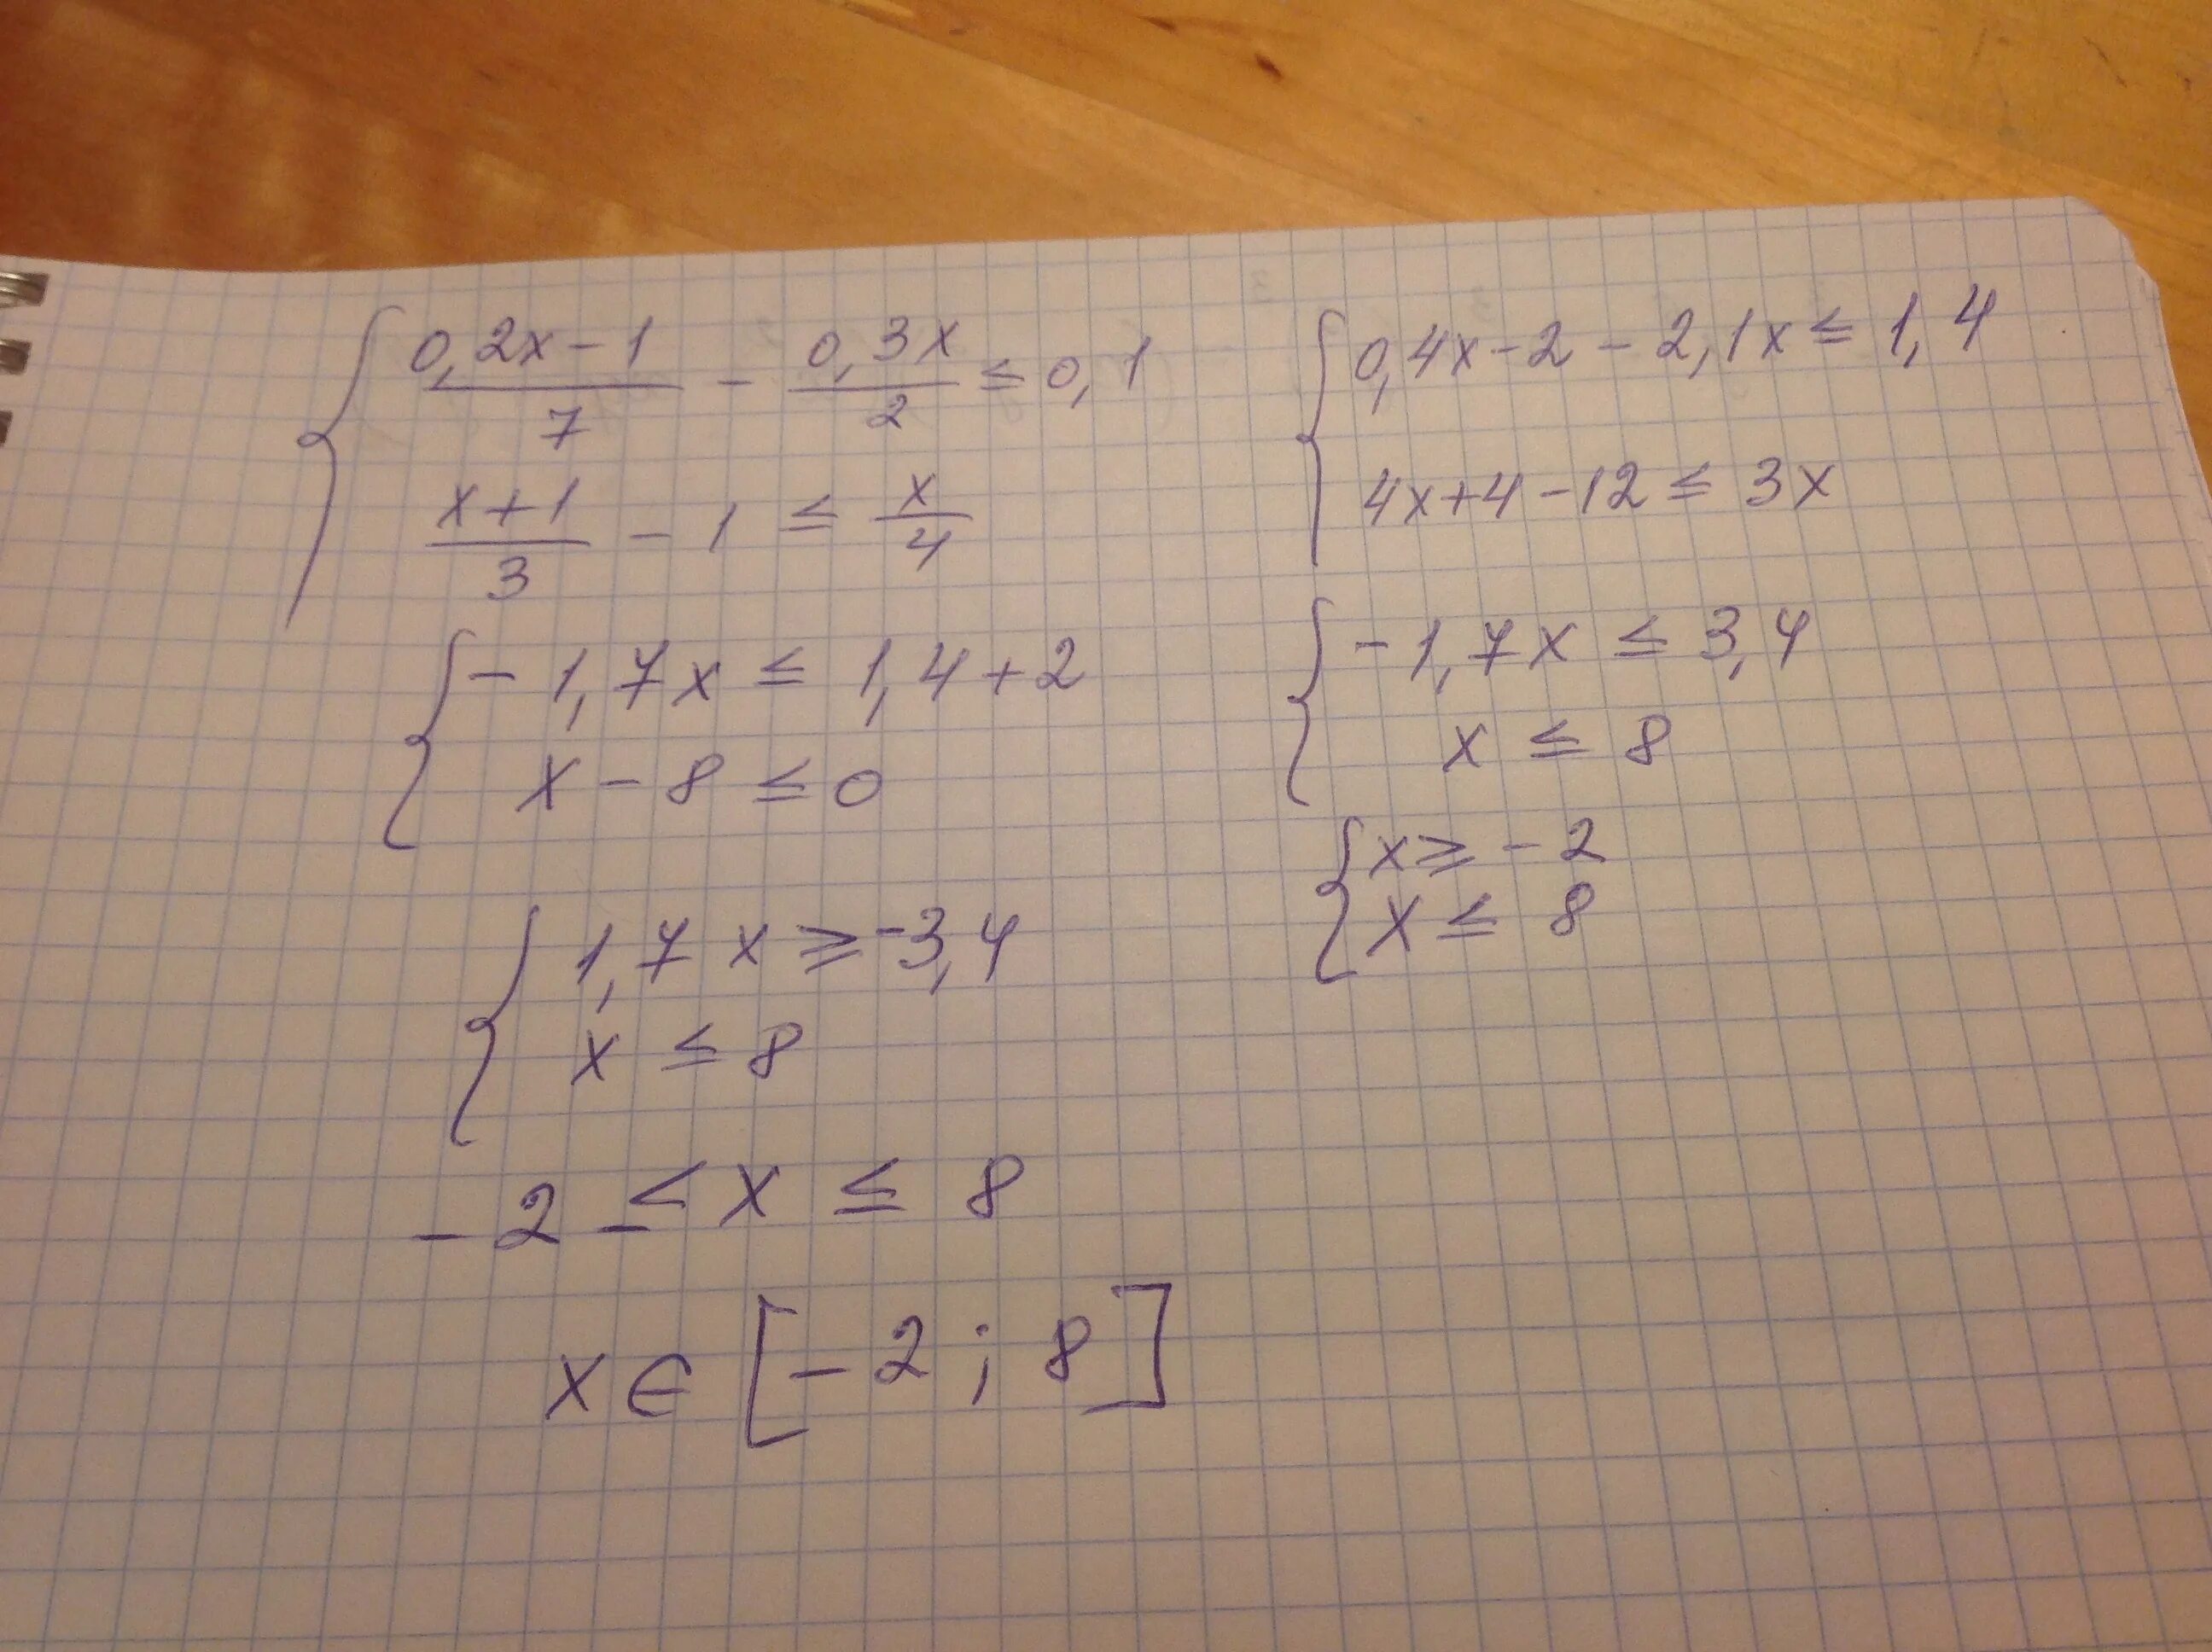 { (0,2x-1)/7 - 0,3x/2 ≤ 0,1
(x+1)/3 - 1 ≤ x/4
{ 0,4x-2-2,1x ≤ 1,4
4x+4-12 ≤ 3x
{ -1,7x ≤ 1,4+2
x-8 ≤ 0
{ -1,7x ≤ 3,4
x ≤ 8
{ 1,7x ≥ -3,4
x ≤ 8
{ x ≥ -2
x ≤ 8
-2 ≤ x ≤ 8
x ∈ [-2; 8]